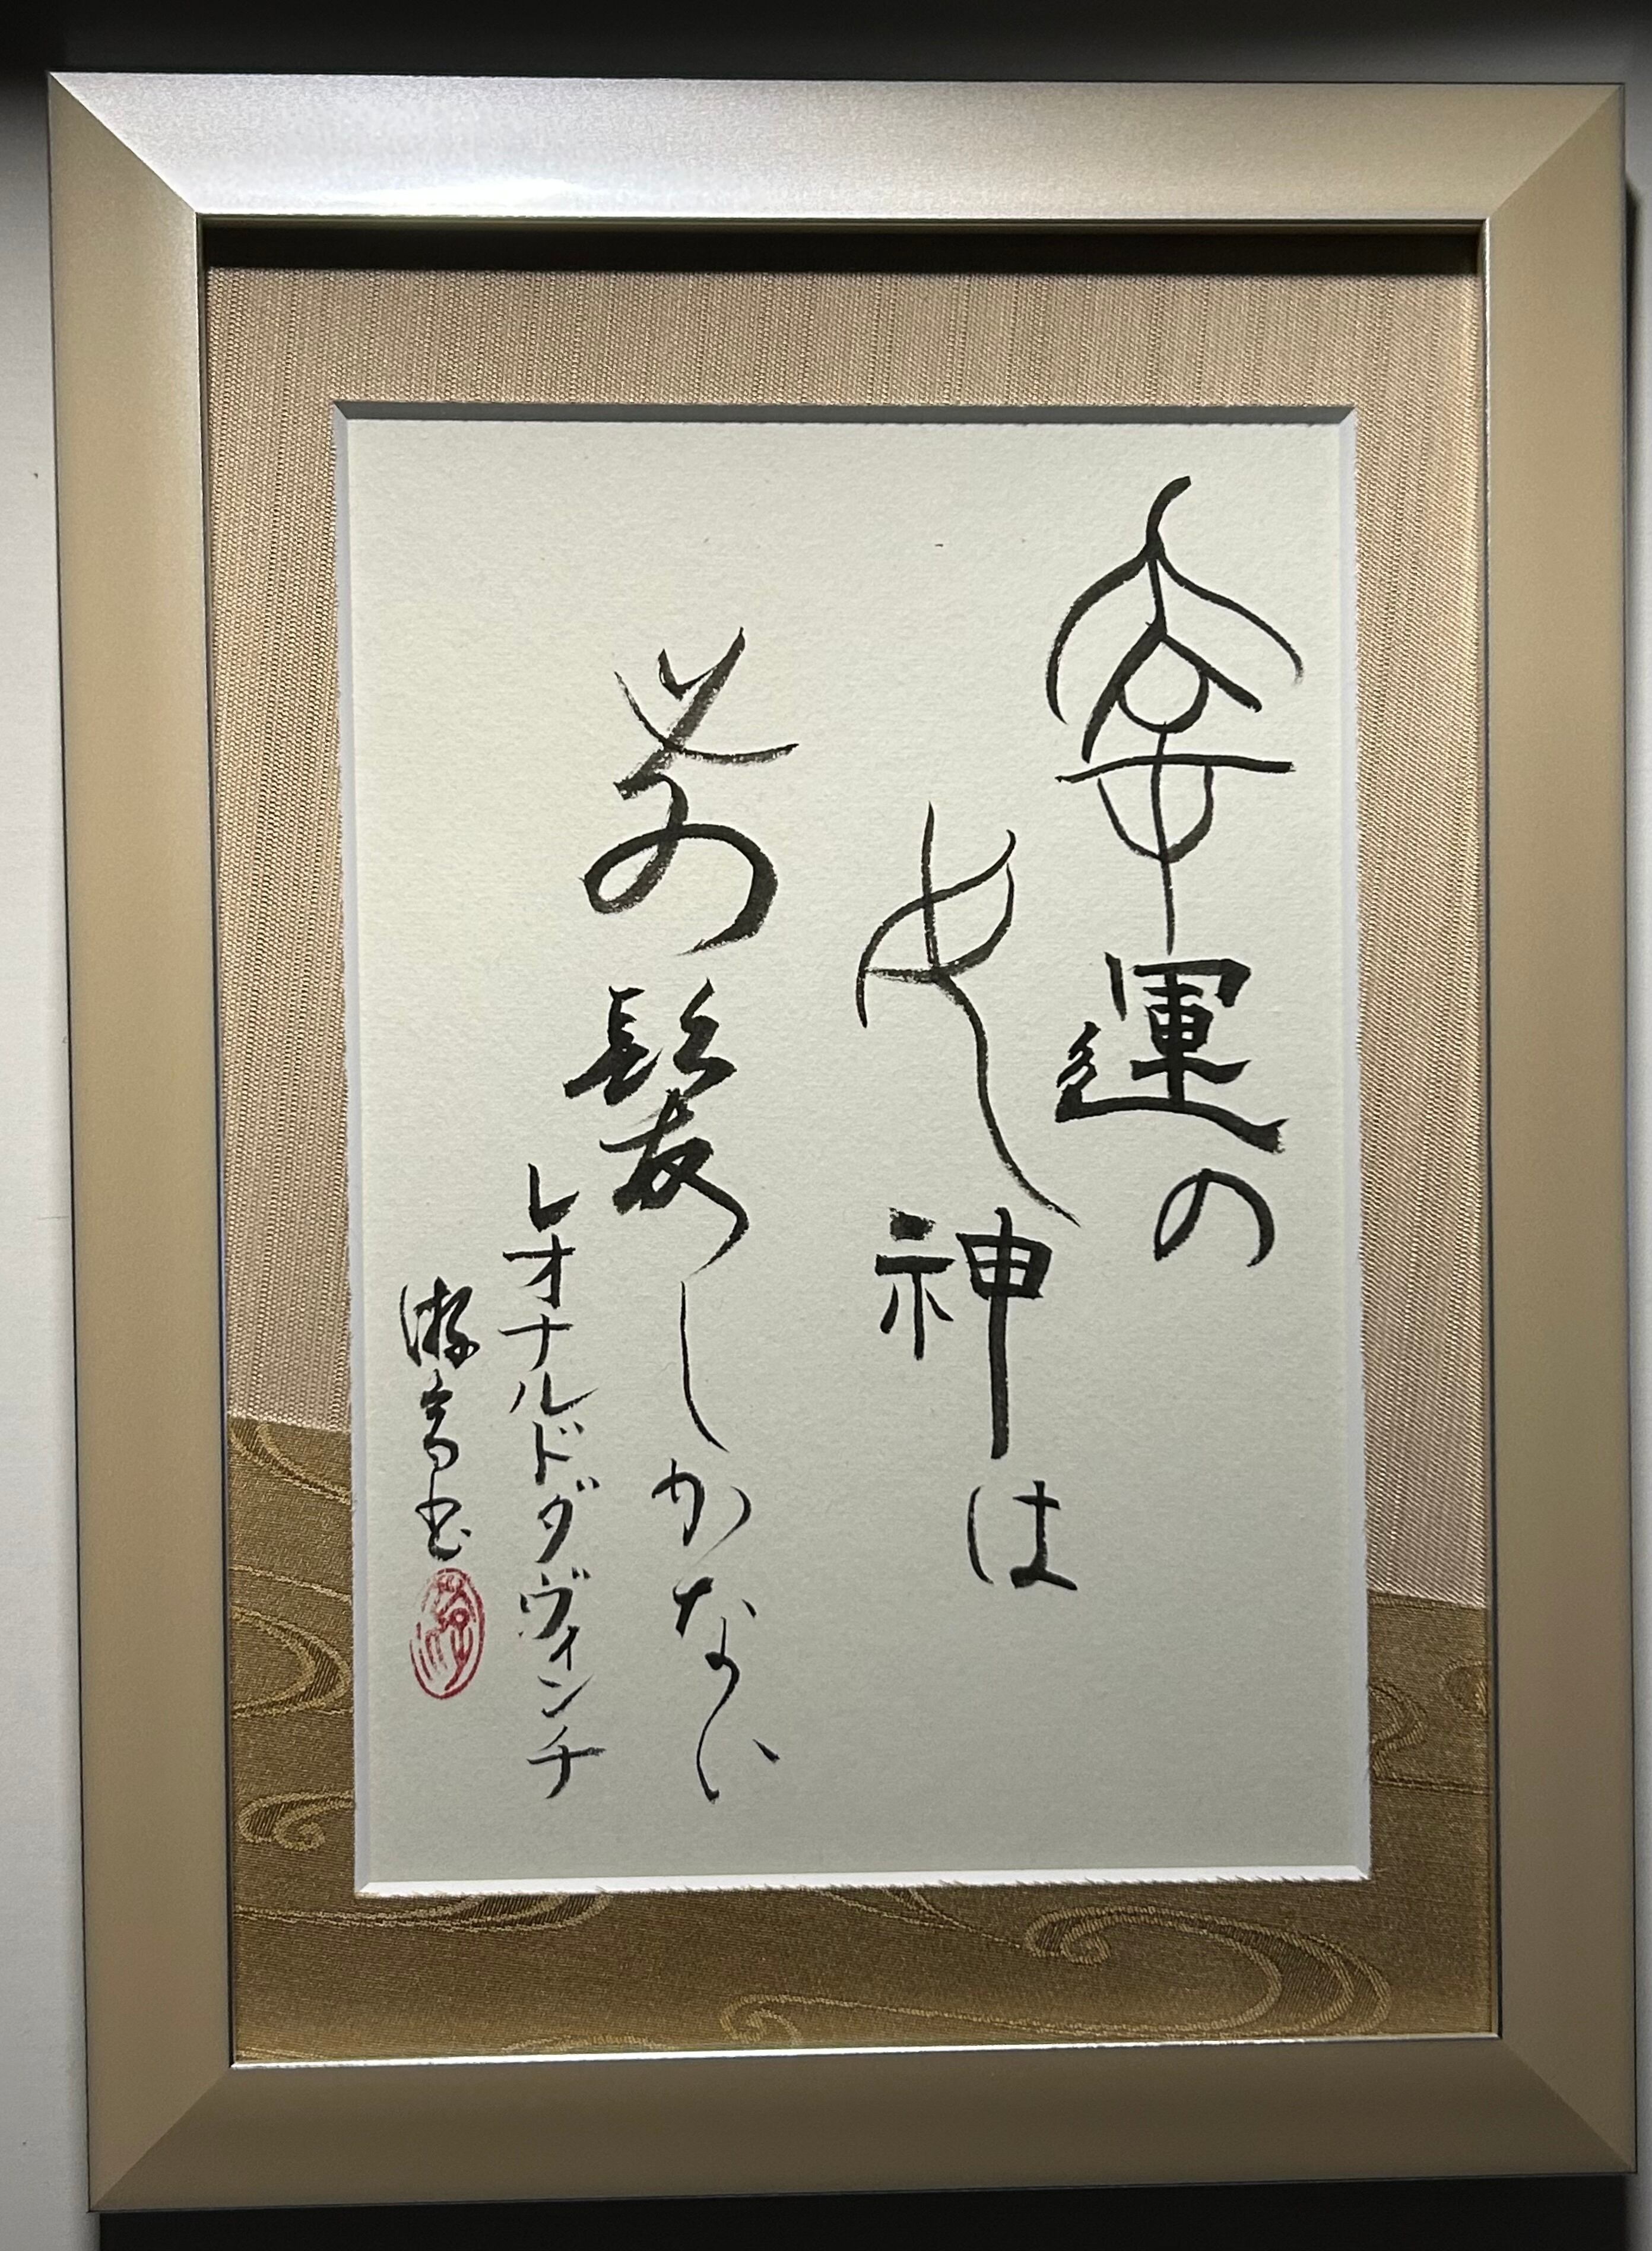 幸運の
女神は
前髪しかない
レオナルドダヴィンチ
游高書